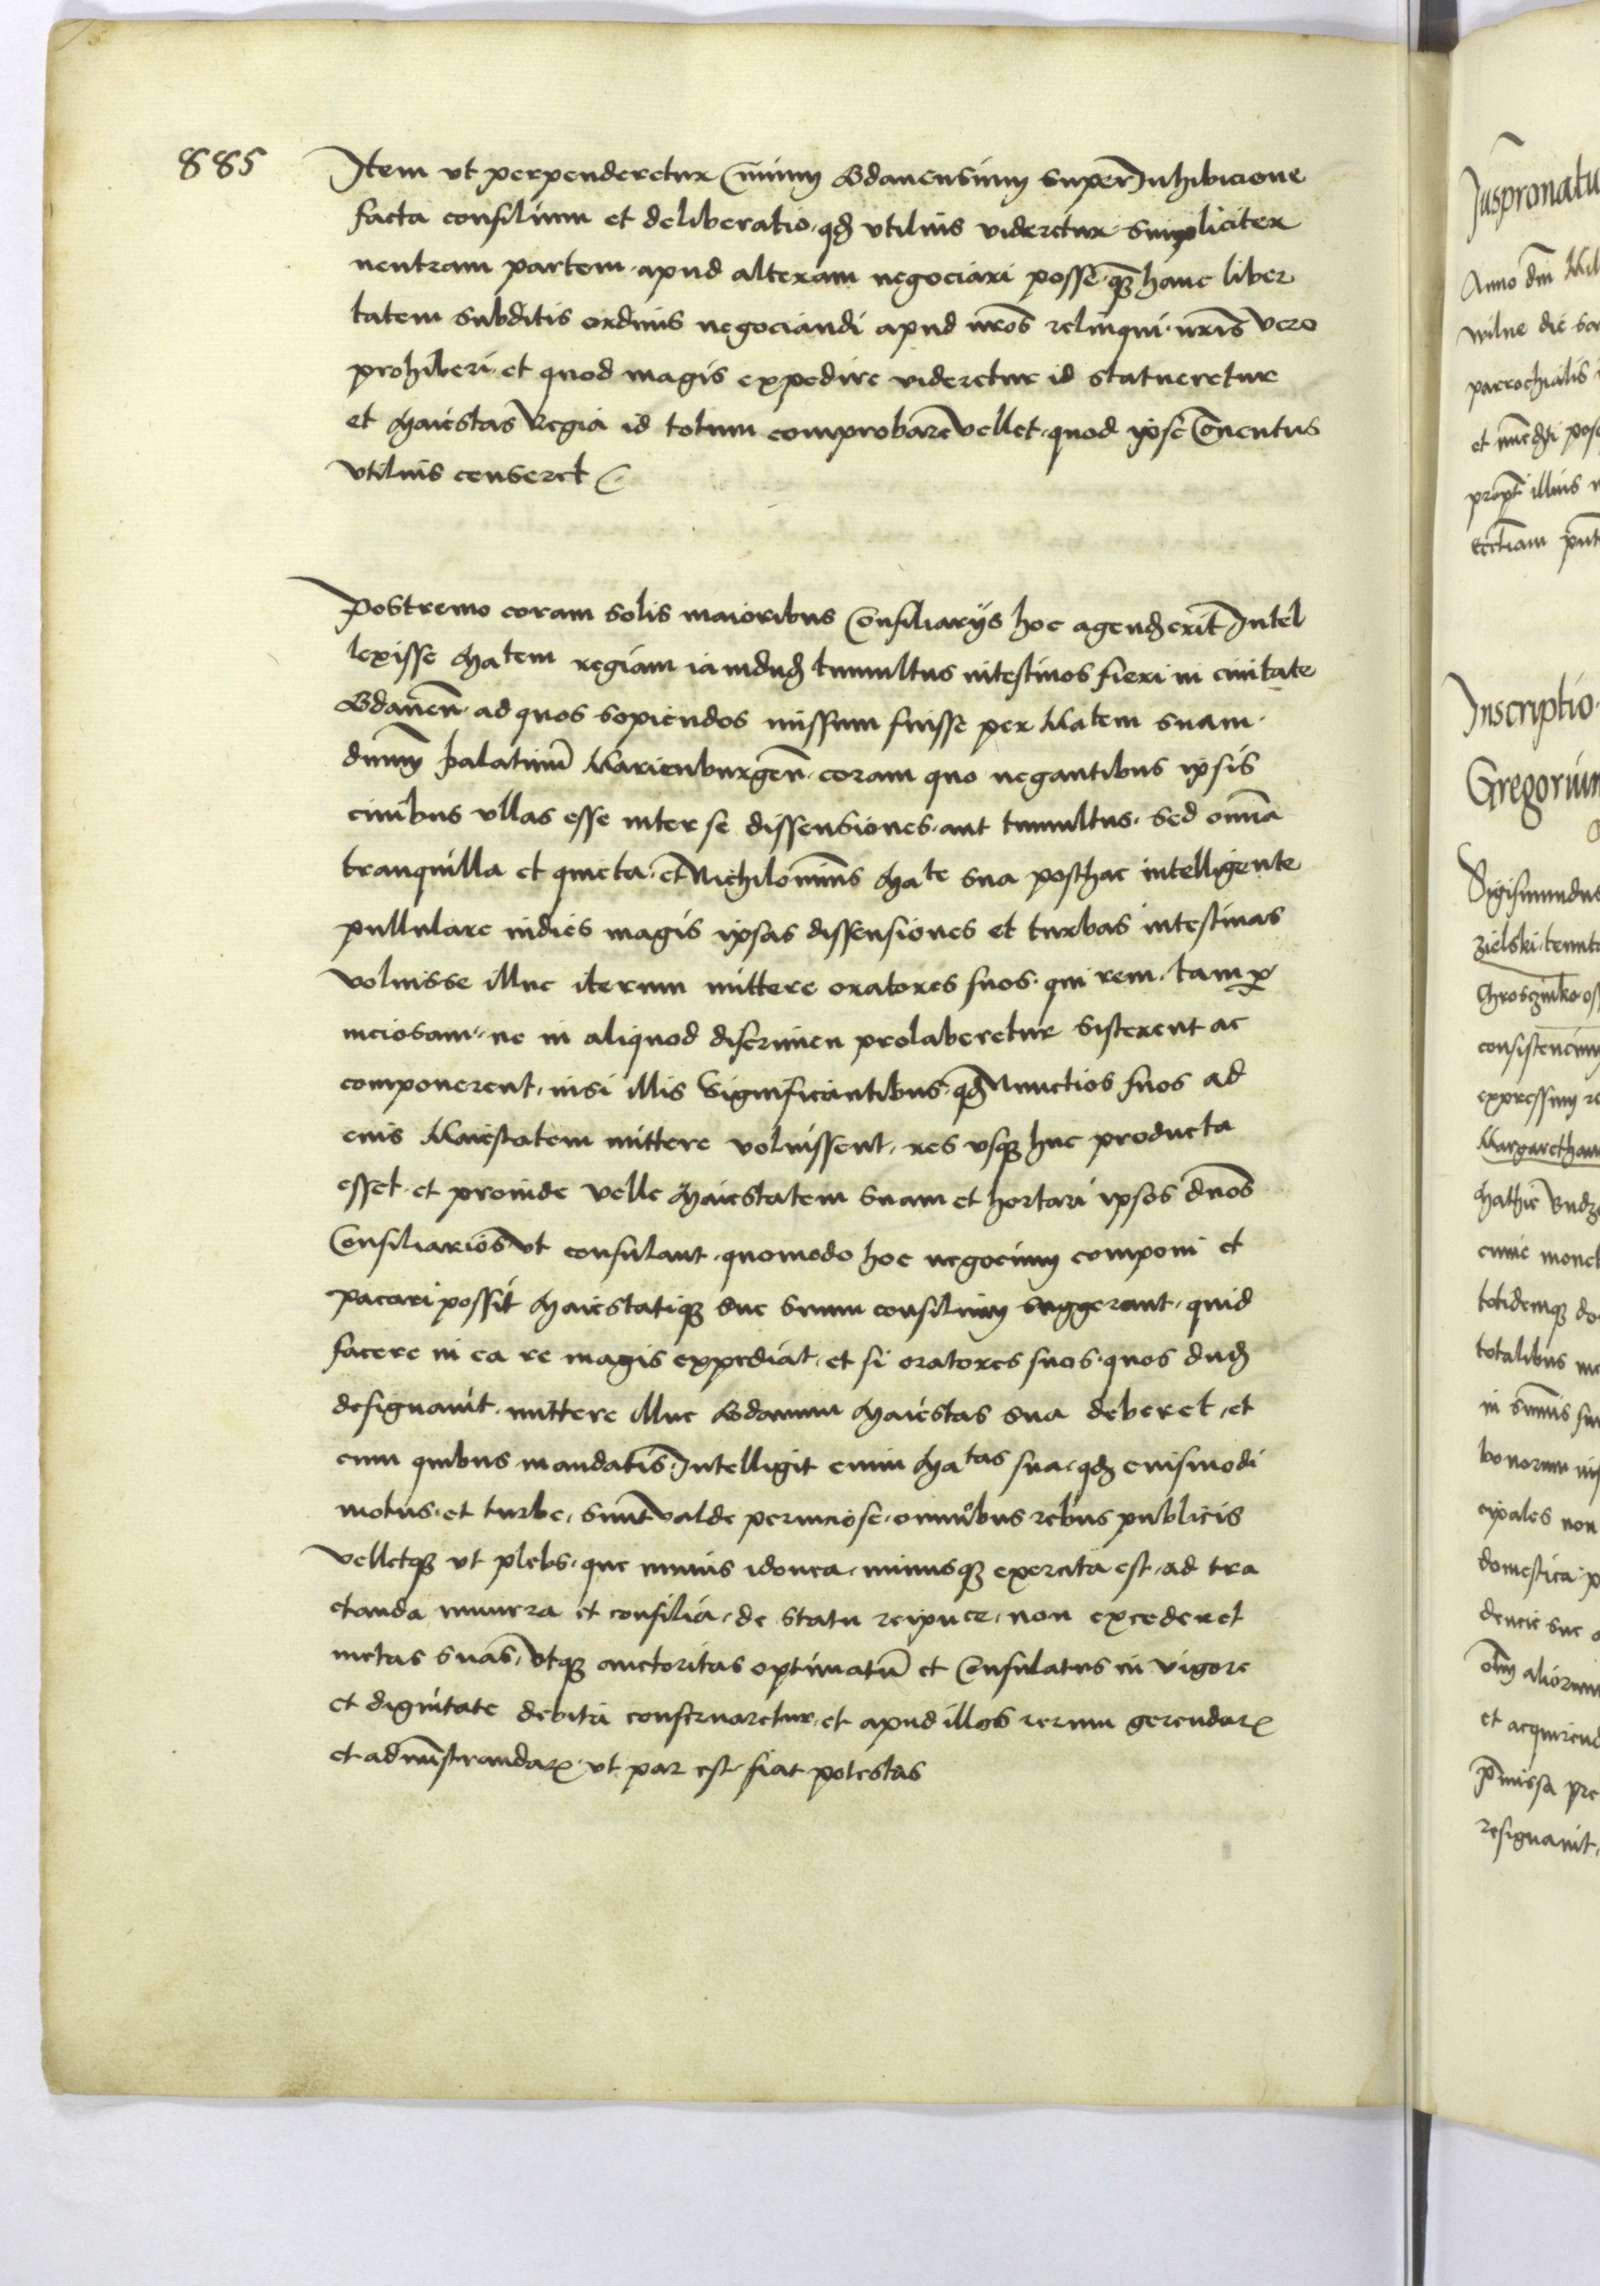 885
Item vt perpenderetur Ciuium Gdanensium super Inhibicione
facta consilium et deliberatio qd vtilius videretur simpliciter
neutram partem apud alteram negociari posse qz hanc liber
tatem subditis ordinis negociandi apud nros relinqui nris vero
prohiberi et quod magis expedire videretur id statueretur
et Maiestas Regia id totum comprobare vellet quod ipse Conentus
vtilius censeret
Postremo coram solis maioribus Consiliarijs hoc agend erit Intel
lexisse Matem regiam iamdud tumultus intestinos fieri in ciuitate
Gdanen ad quos sopiendos missum fuisse per Matem suam
dnum palatinu Marienburgen coram quo negantibus ipsis
ciuibus vllas esse inter se dissensiones aut tumultus sed omnia
tranquilla et quieta et Nichilominus Mate sua posthac intelligente
pullulare indies magis ipsas dissensiones et turbas intestinas
voluisse illuc iterum mittere oratores suos qui rem tam per
niciosam ne in aliquod discrimen prolaberetur sisterent ac
componerent nisi illis significantibus qd Nunctios suos ad
eius Maiestatem mittere voluissent res vsqz huc producta
esset et proinde velle Maiestatem suam et hortari ipsos dnos
Consiliarios vt consulant quomodo hoc negocium componi et
pacari possit Maiestatiqz sue suum consilium suggerant quid
facere in ea re magis expediat et si oratores suos quos dud
designauit mittere illuc Gdanum Maiestas sua deberet et
cum quibus mandatis Intelligit enim Matas sua qd eiusmodi
motus et turbe sunt valde perniciose omnibus rebus publicis
velletqz vt plebs que minus idonea minusqz exercita est ad tra
ctanda munera et consilia de statu reipuce non excederet
metas suas vtqz auctoritas optimatu et Consulatus in vigore
et dignitate debita conseruaretur et apud illos rerum gerendar
et administrandar vt par est fiat potestas
Anno dni
wilne die
parrochialis
et
illius
Inscriptio
Gregorium
Sigismundus
zielski
totidemqz
totalibus
bonorum
non
domestica
aliorum
pmissa
resignauit